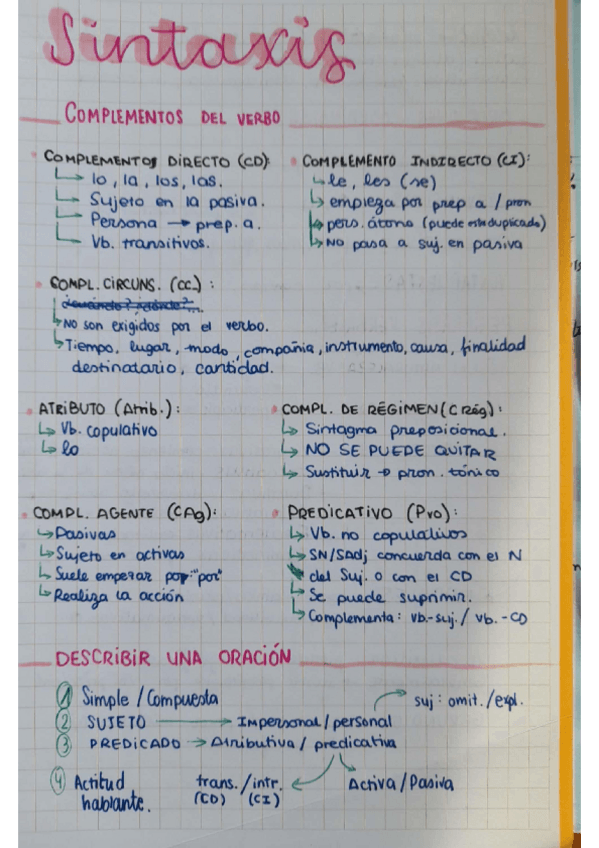 Sintaxis
COMPLEMENTOS DEL VERBO
COMPLEMENTOS DIRECTO (CD):
↳ lo, la, los, las.
↳ Sujeto en la pasiva.
↳ Persona → prep. a.
↳ Vb. transitivos.
COMPLEMENTO INDIRECTO (CI):
↳ le, les (se)
↳ empieza por prep a / pron
↳ pers. átono (puede estar duplicado)
↳ NO pasa a suj. en pasiva
COMPL. CIRCUNS. (CC.):
↳ NO son exigidos por el verbo.
↳ Tiempo, lugar, modo, compañia, instrumento, causa, finalidad
destinatario, cantidad.
ATRIBUTO (Atrib.):
↳ Vb. copulativo
↳ lo
COMPL. DE RÉGIMEN (C Rég):
↳ Sintagma preposicional.
↳ NO SE PUEDE QUITAR
↳ Sustituir → pron. tónico
COMPL. AGENTE (CAg):
↳ Pasivas
↳ Sujeto en activas
↳ Suele empezar por "por"
↳ Realiza la acción
PREDICATIVO (Pvo):
↳ Vb. no copulativos
↳ SN/SAdj concuerda con el N
del Suj. o con el CD
↳ Se puede suprimir.
↳ Complementa: vb.-suj. / vb.-CD
DESCRIBIR UNA ORACIÓN
① Simple / Compuesta
suj: omit. / expl.
② SUJETO → Impersonal / personal
③ PREDICADO → Atributiva / predicativa
④ Actitud
hablante.
trans. / intr.
(CD) (CI)
Activa / Pasiva